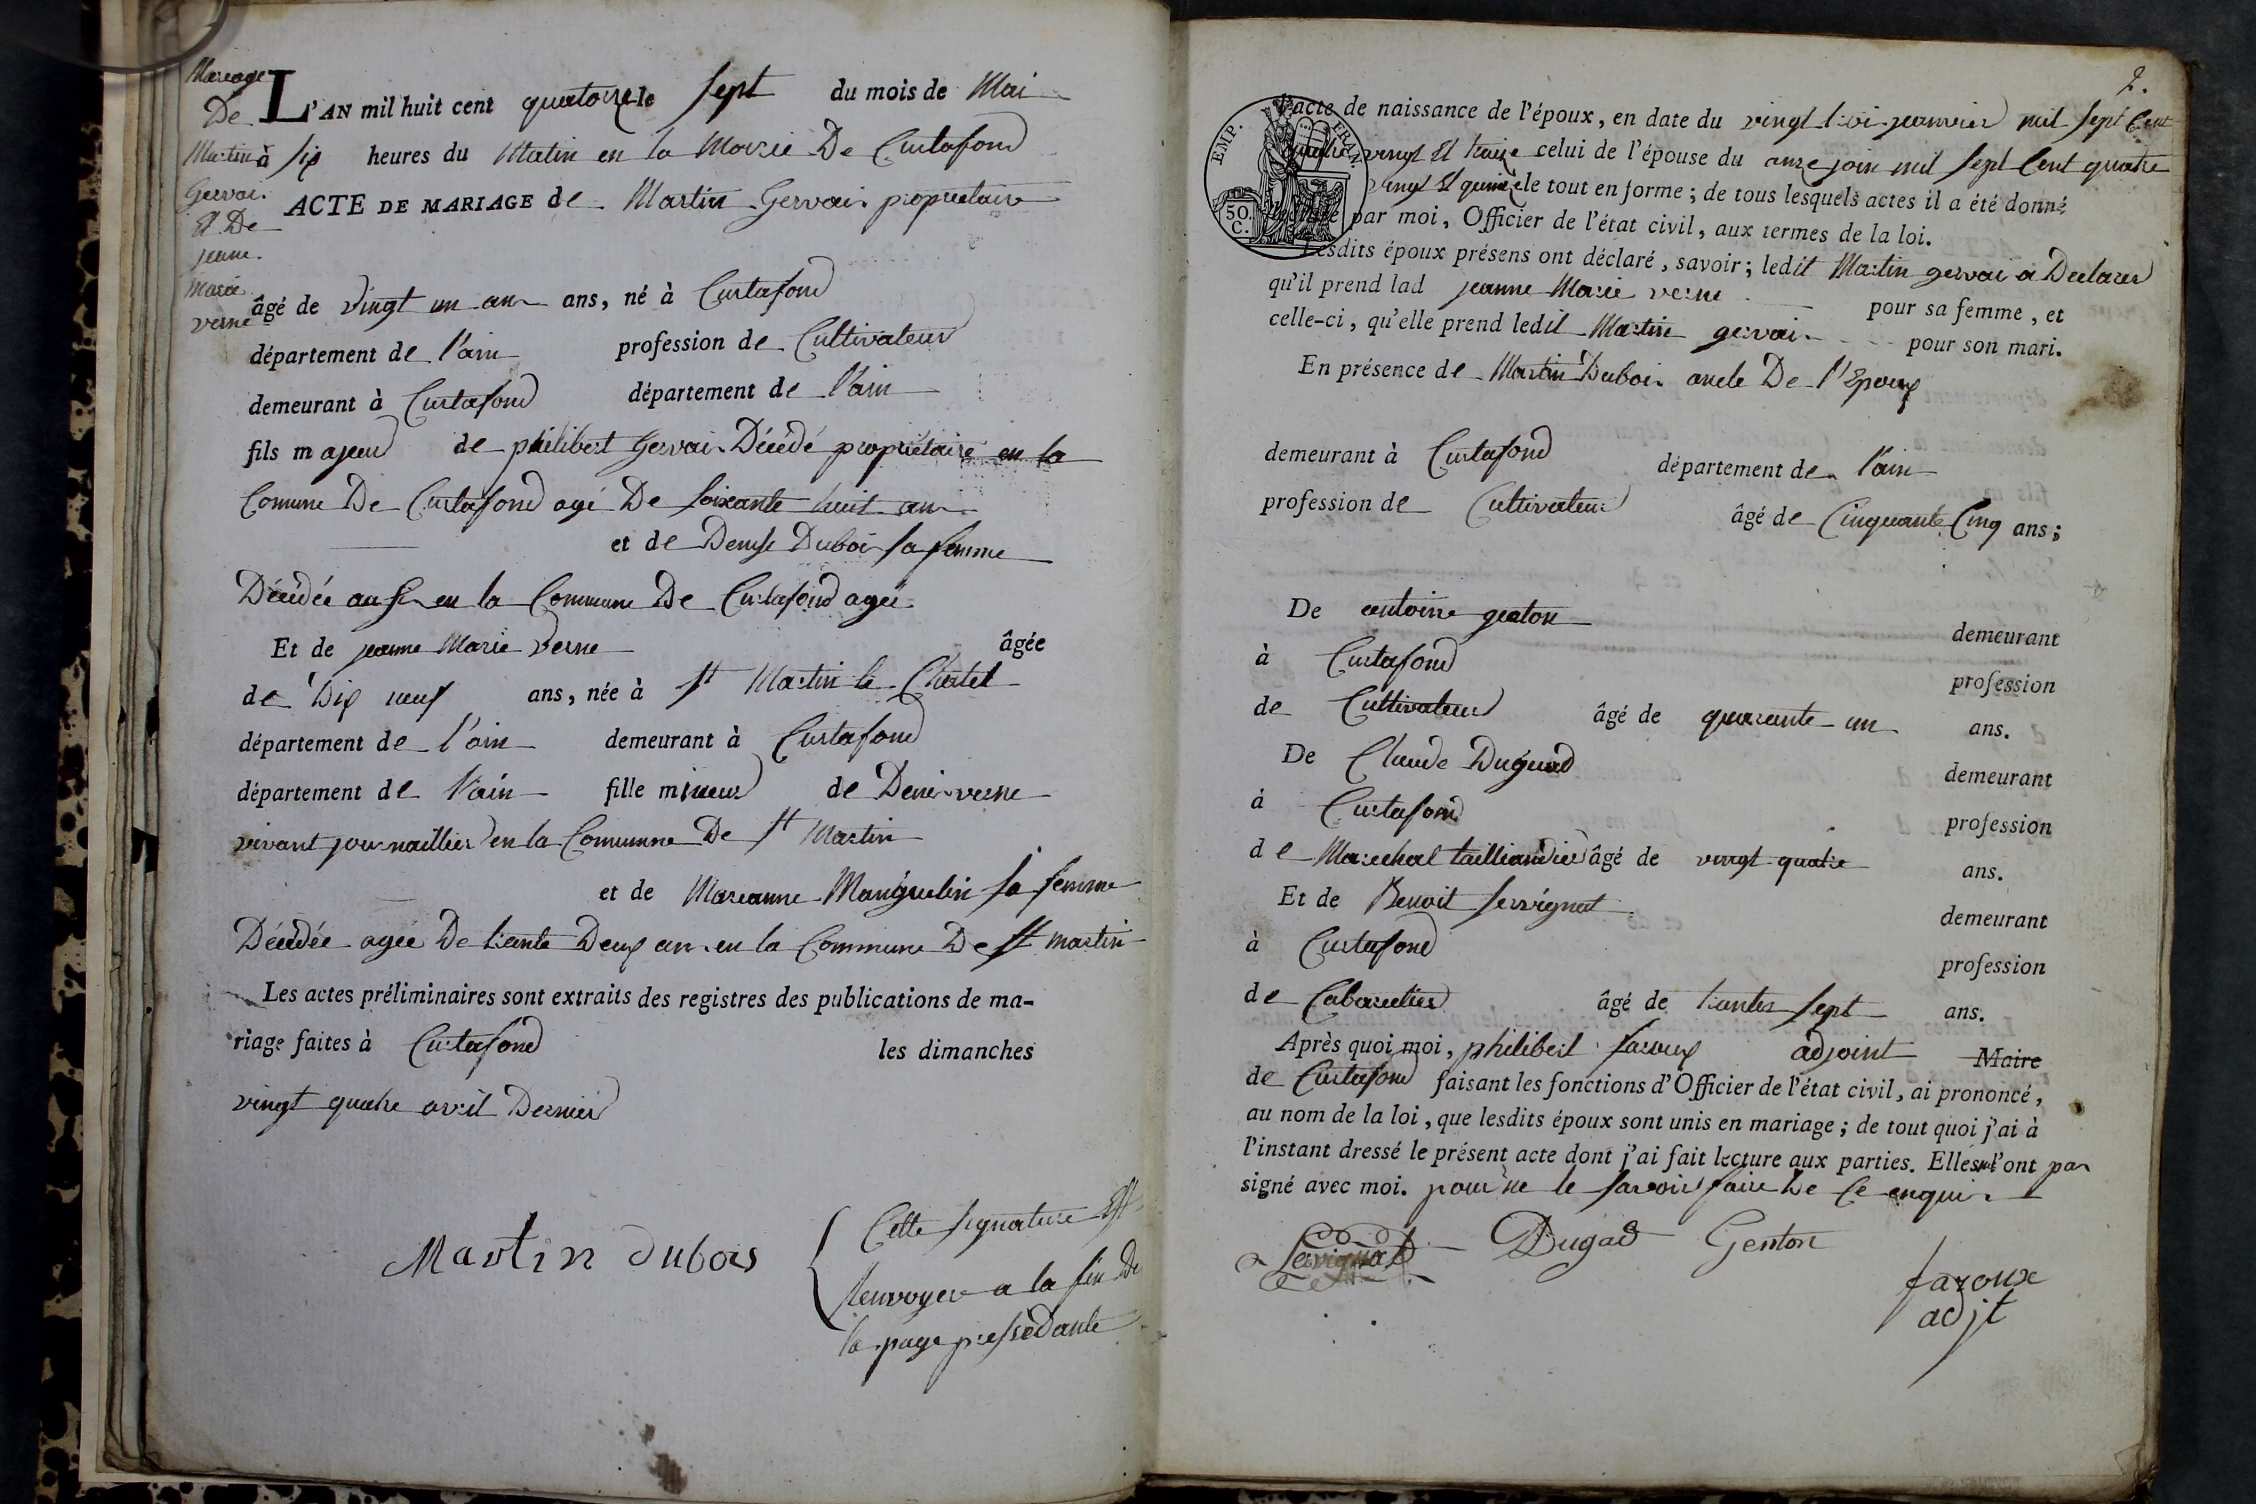 Mariage
De
Martin
Gervais
Et De
jeanne
Marie
verne
L'AN mil huit cent quatorze le sept du mois de Mai
à six heures du Matin en la Mairie De Curtafond
ACTE DE MARIAGE de Martin Gervais propriétaire
âgé de vingt un ans ans, né à Curtafond
département de l'ain profession de Cultivateur
demeurant à Curtafond département de l'ain
fils majeur de philibert Gervais Décédé propriétaire en la
Comune De Curtafond agé De soixante huit ans
et de Denise Dubois sa femme
Décédée aussi en la Commune De Curtafond agée
Et de jeanne Marie Verne âgée
de Dix neuf ans, née à St Martin le Chatel
département de l'ain demeurant à Curtafond
département de l'ain fille mineur de Denis verne
vivant journaillier en la Commune De St Martin
et de Marianne Manguelin sa femme
Décédée agée De trante Deux ans en la Commune De St martin
Les actes préliminaires sont extraits des registres des publications de ma-
riage faites à Curtafond les dimanches
vingt quatre avril Dernier
Martin dubois
Cette signature Est
Renvoyer a la fin De
la page pressedante
2.
EMP. FRAN.
50. C.
L'acte de naissance de l'époux, en date du vingt troi janvier mil sept Cent
quatre vingt Et traize celui de l'épouse du onze join mil sept Cent quatre
vingt Et quinze le tout en forme; de tous lesquels actes il a été donné
lecture par moi, Officier de l'état civil, aux termes de la loi.
Lesdits époux présens ont déclaré, savoir; ledit Martin gervai a Declarer
qu'il prend lad jeanne Marie verne pour sa femme, et
celle-ci, qu'elle prend ledit Martin gervais pour son mari.
En présence de Martin Dubois oncle De l'Epoux
demeurant à Curtafond département de l'ain
profession de Cultivateur âgé de Cinquante Cinq ans;
De antoine geaton demeurant
à Curtafond profession
de Cultivateur âgé de quarante un ans.
De Claude Dugad demeurant
à Curtafond profession
de Marechal tailliandier âgé de vingt quatre ans.
Et de Benoit servignat demeurant
à Curtafond profession
de Cabaretier âgé de trante sept ans.
Après quoi moi, philibert faroux adjoint Maire
de Curtafond faisant les fonctions d'Officier de l'état civil, ai prononcé,
au nom de la loi, que lesdits époux sont unis en mariage; de tout quoi j'ai à
l'instant dressé le présent acte dont j'ai fait lecture aux parties. Elles ne l'ont pas
signé avec moi. pour ne le savoir faire De Ce enquis
Servignat Dugad Genton
faroux
adjt